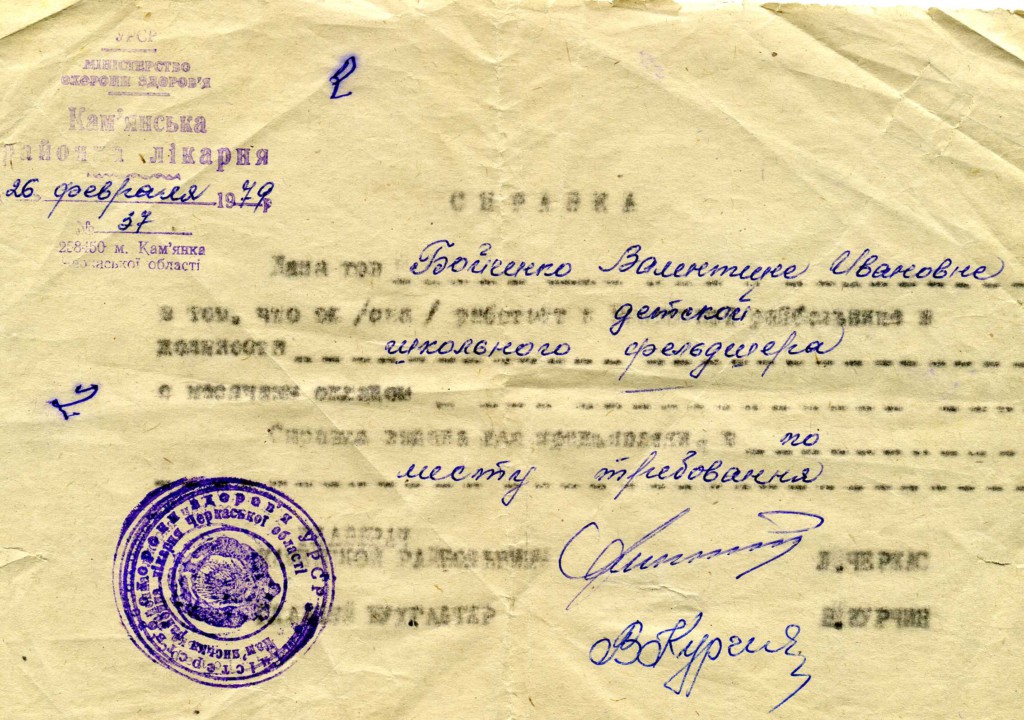 УРСР
МІНІСТЕРСТВО
ОХОРОНИ ЗДОРОВ'Я
Кам'янська
районна лікарня
26 февраля 1979 г
№ 37
258450 м. Кам'янка
Черкаської області
СПРАВКА
Дана тов Бойченко Валентине Ивановне
в том, что он /она / работает в детской райбольнице в
должности школьного фельдшера
с месячным окладом
Справка выдана для предъявления, в по
месту требования
РАЙБОЛЬНИЦЫ
ЧЕРКАС
БУХГАЛТЕР
КУРЧИН
В Курчин
Міністерство охорони здоров'я УРСР
Кам'янська районна лікарня Черкаської області